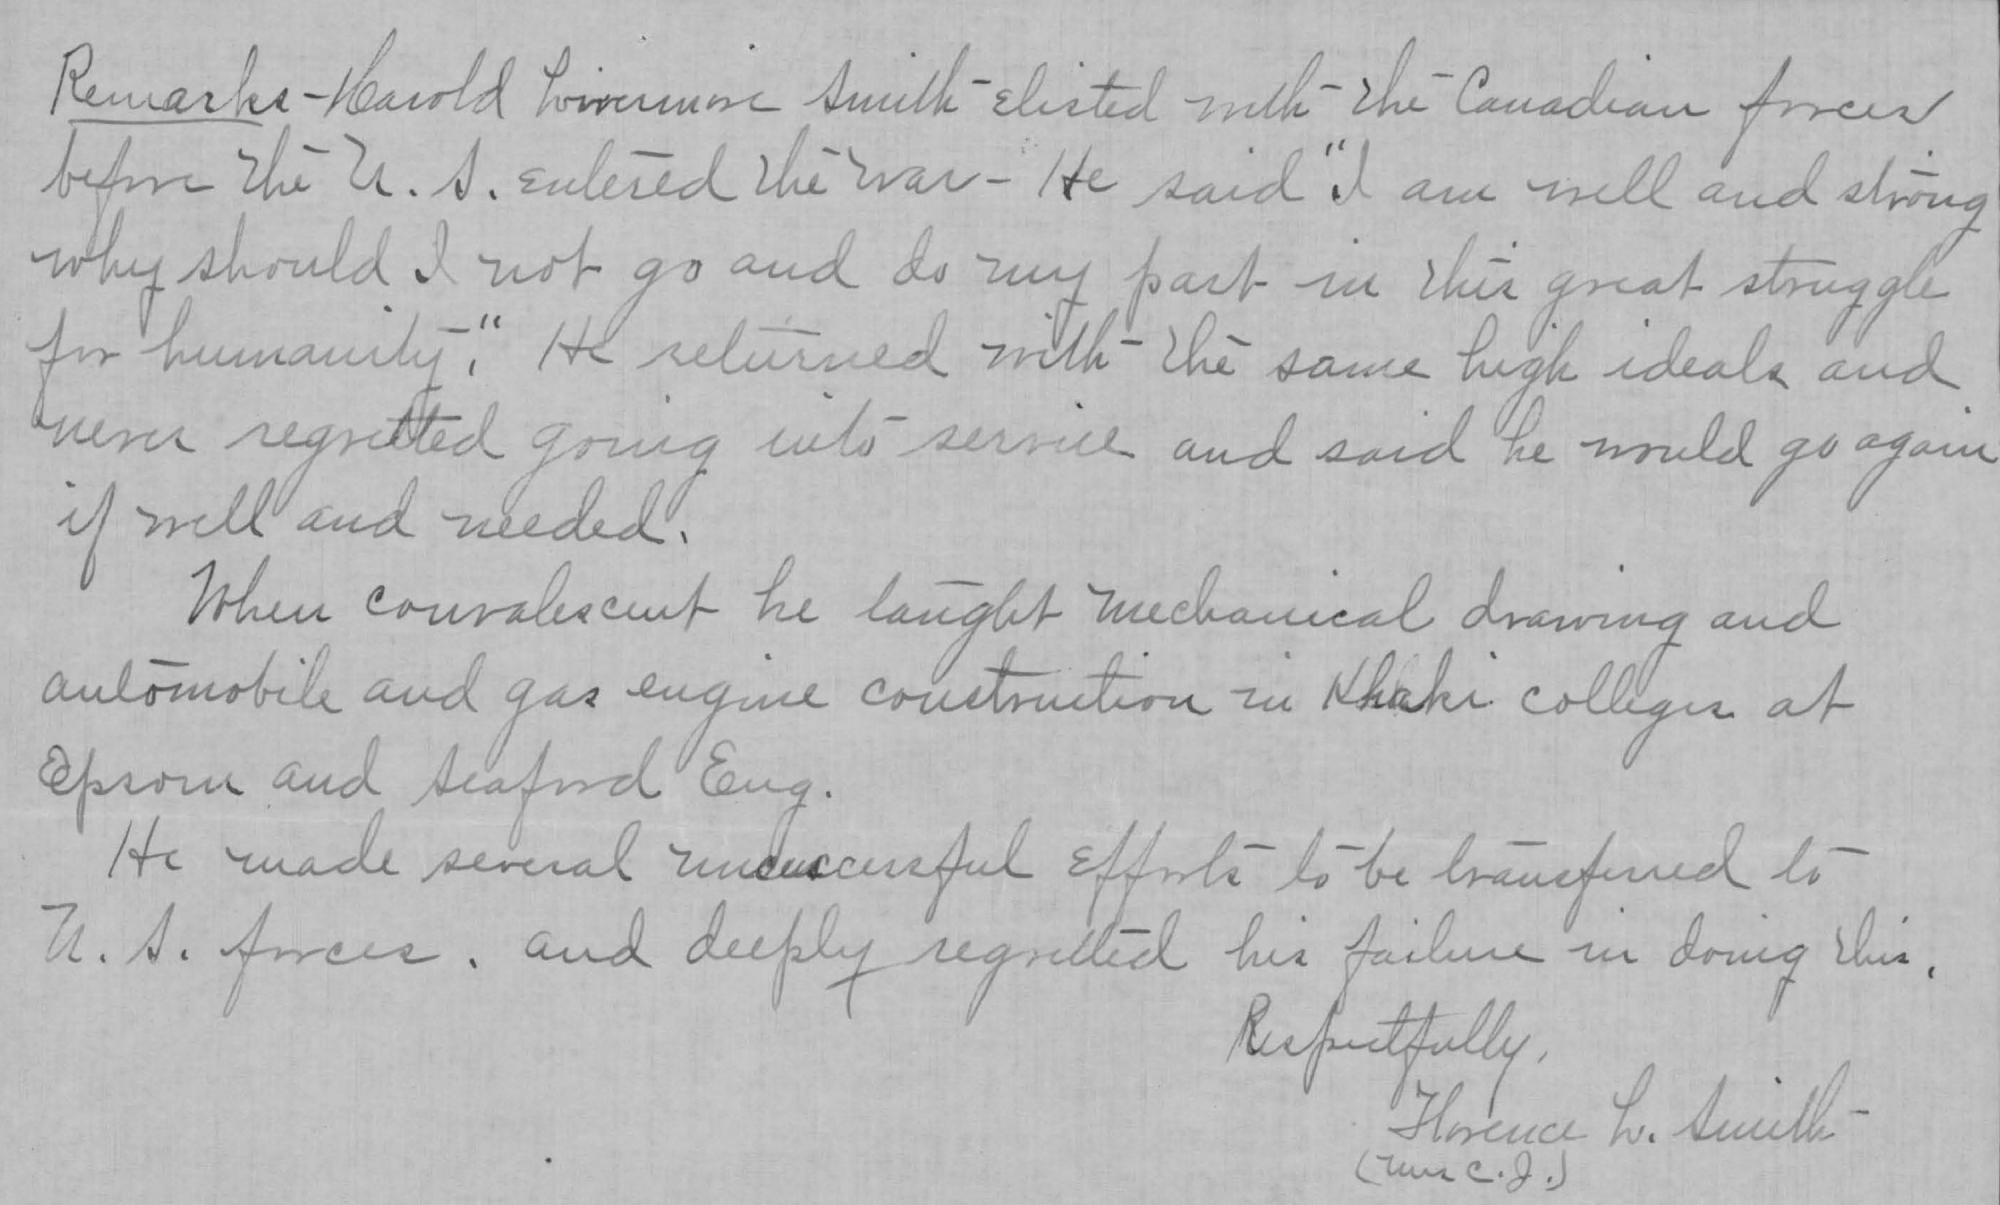 Remarks - Harold Livermore Smith elisted with the Canadian forces
before the U. S. entered the war - He said "I am well and strong
why should I not go and do my part in this great struggle
for humanity." He returned with the same high ideals and
never regretted going into service and said he would go again
if well and needed.
When convalescent he taught mechanical drawing and
automobile and gas engine construction in Khaki colleges at
Epsom and Seaford Eng.
He made several unsuccessful efforts to be transferred to
U. S. forces. and deeply regretted his failure in doing this.
Respectfully,
Florence L. Smith
(Mrs C. J.)